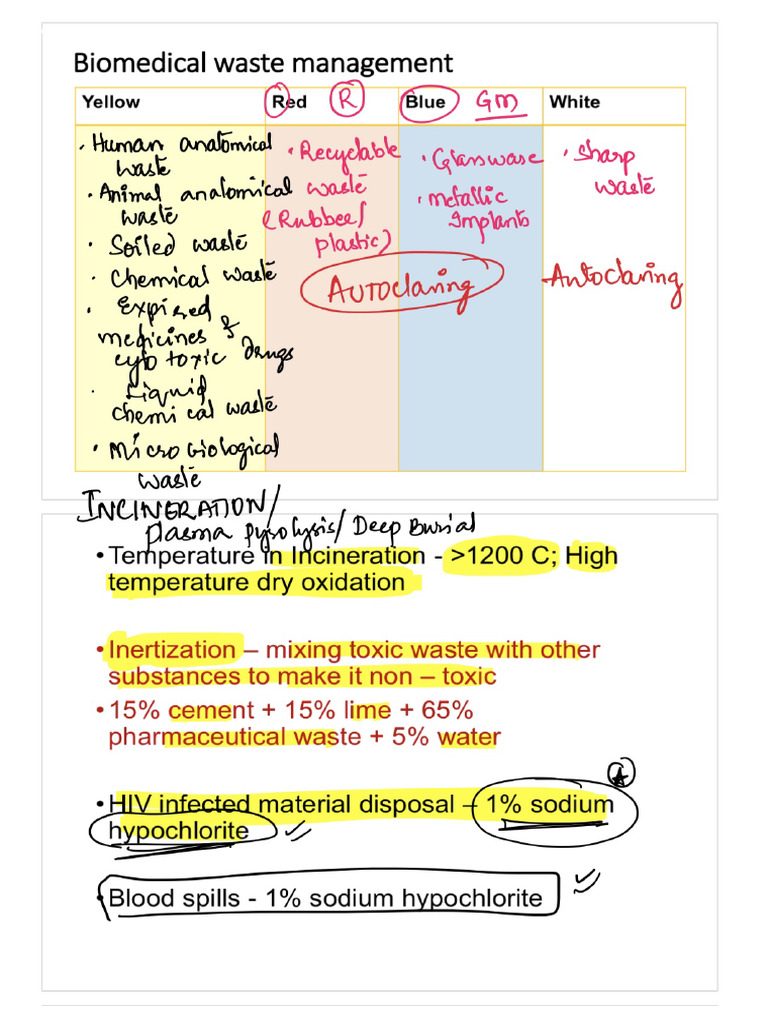 Biomedical waste management
Yellow
• Human anatomical
waste
• Animal anatomical
waste
• Soiled waste
• Chemical waste
• Expired
medicines &
cytotoxic drugs
• Liquid
chemical waste
• Microbiological
waste
INCINERATION/
plasma pyrolysis/ Deep Burial
Red R
• Recyclable
waste
(Rubber/
plastic)
Blue GM
• Glassware
• metallic
Implants
AUTOclaving
White
• Sharp
waste
Autoclaving
• Temperature in Incineration - >1200 C; High
temperature dry oxidation
• Inertization – mixing toxic waste with other
substances to make it non – toxic
• 15% cement + 15% lime + 65%
pharmaceutical waste + 5% water
• HIV infected material disposal – 1% sodium
hypochlorite
• Blood spills - 1% sodium hypochlorite